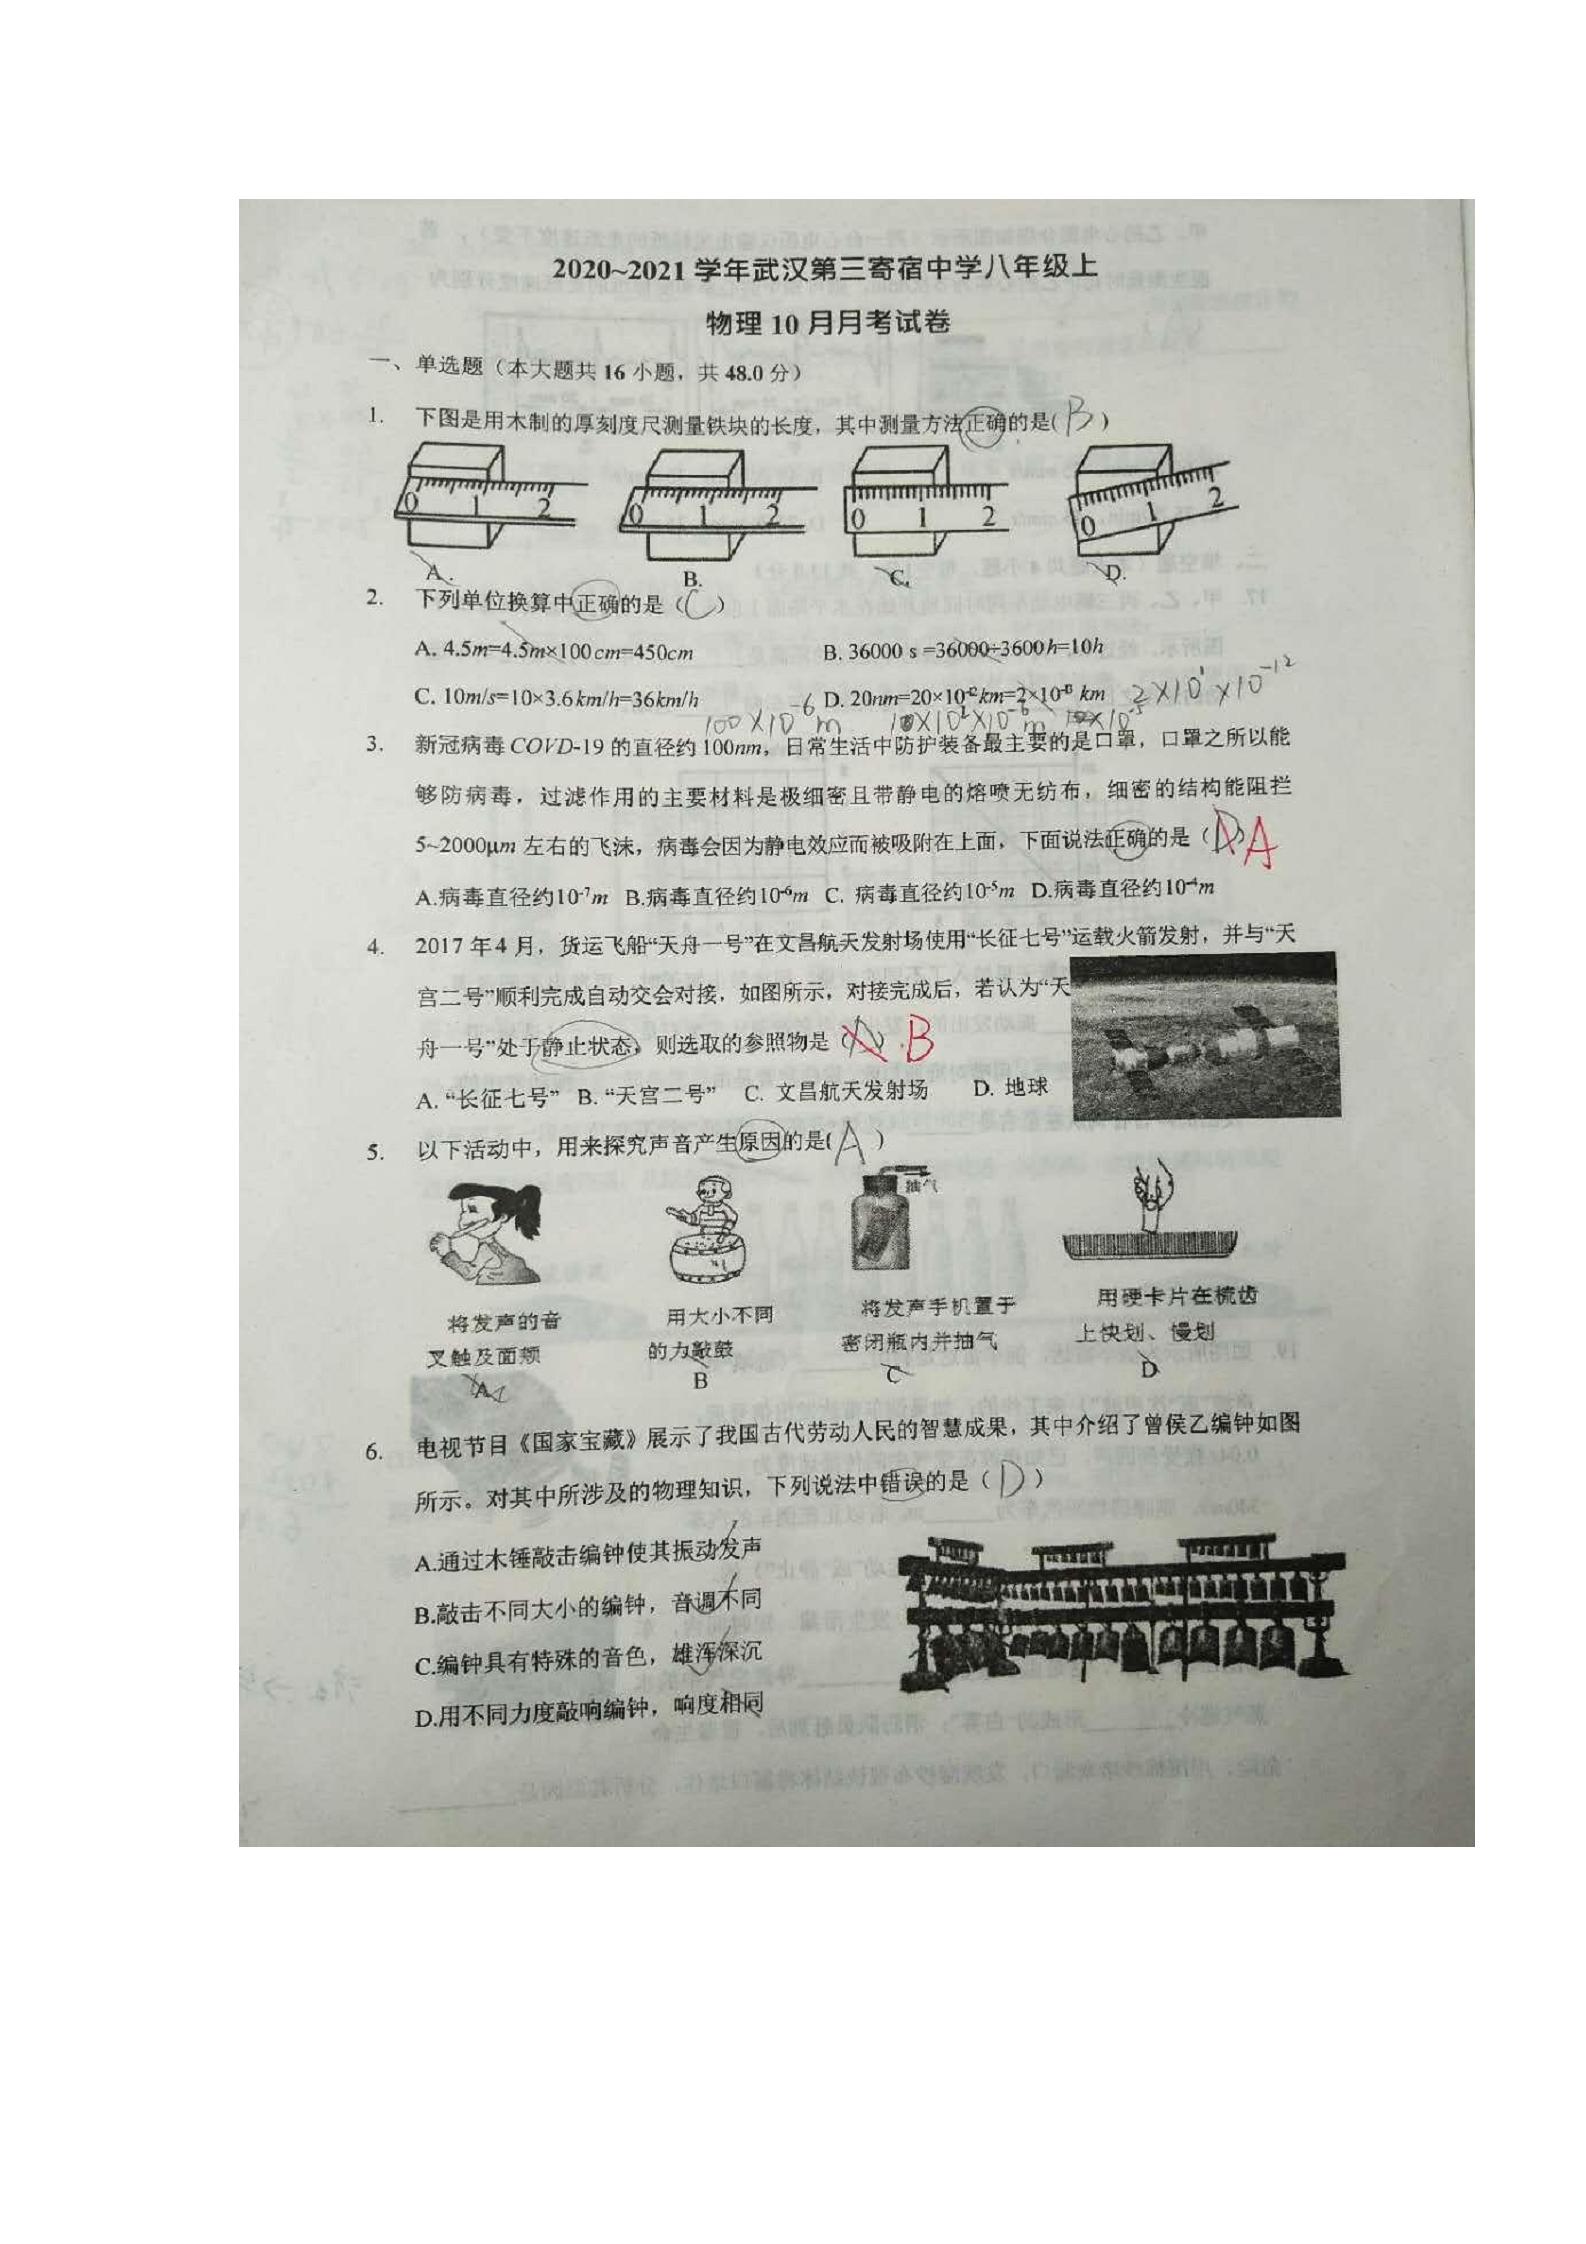 2020~2021 学年武汉第三寄宿中学八年级上
物理 10 月月考试卷
一、单选题（本大题共 16 小题，共 48.0 分）
1. 下图是用木制的厚刻度尺测量铁块的长度，其中测量方法正确的是( B )
0 1 2 0 1 2 0 1 2 0 1 2
A. B. C. D.
2. 下列单位换算中正确的是（ C ）
A. 4.5m=4.5m×100cm=450cm B. 36000 s =36000÷3600h=10h
C. 10m/s=10×3.6km/h=36km/h D. 20nm=20×10⁻¹²km=2×10⁻¹³ km 2×10¹×10⁻¹²
100×10⁻⁶m
3. 新冠病毒 COVD-19 的直径约 100nm，日常生活中防护装备最主要的是口罩，口罩之所以能
够防病毒，过滤作用的主要材料是极细密且带静电的熔喷无纺布，细密的结构能阻拦
5~2000μm 左右的飞沫，病毒会因为静电效应而被吸附在上面，下面说法正确的是（ D ）A
A.病毒直径约10⁻⁷m B.病毒直径约10⁻⁶m C. 病毒直径约10⁻⁵m D.病毒直径约10⁻⁴m
4. 2017 年 4 月，货运飞船“天舟一号”在文昌航天发射场使用“长征七号”运载火箭发射，并与“天
宫二号”顺利完成自动交会对接，如图所示，对接完成后，若认为“天
舟一号”处于静止状态，则选取的参照物是（ ）B
A. “长征七号” B. “天宫二号” C. 文昌航天发射场 D. 地球
5. 以下活动中，用来探究声音产生原因的是( A )
抽气
将发声的音 用大小不同 将发声手机置于 用硬卡片在梳齿
叉触及面颊 的力敲鼓 密闭瓶内并抽气 上快划、慢划
A B C D
6. 电视节目《国家宝藏》展示了我国古代劳动人民的智慧成果，其中介绍了曾侯乙编钟如图
所示。对其中所涉及的物理知识，下列说法中错误的是（ D ）
A.通过木锤敲击编钟使其振动发声
B.敲击不同大小的编钟，音调不同
C.编钟具有特殊的音色，雄浑深沉
D.用不同力度敲响编钟，响度相同